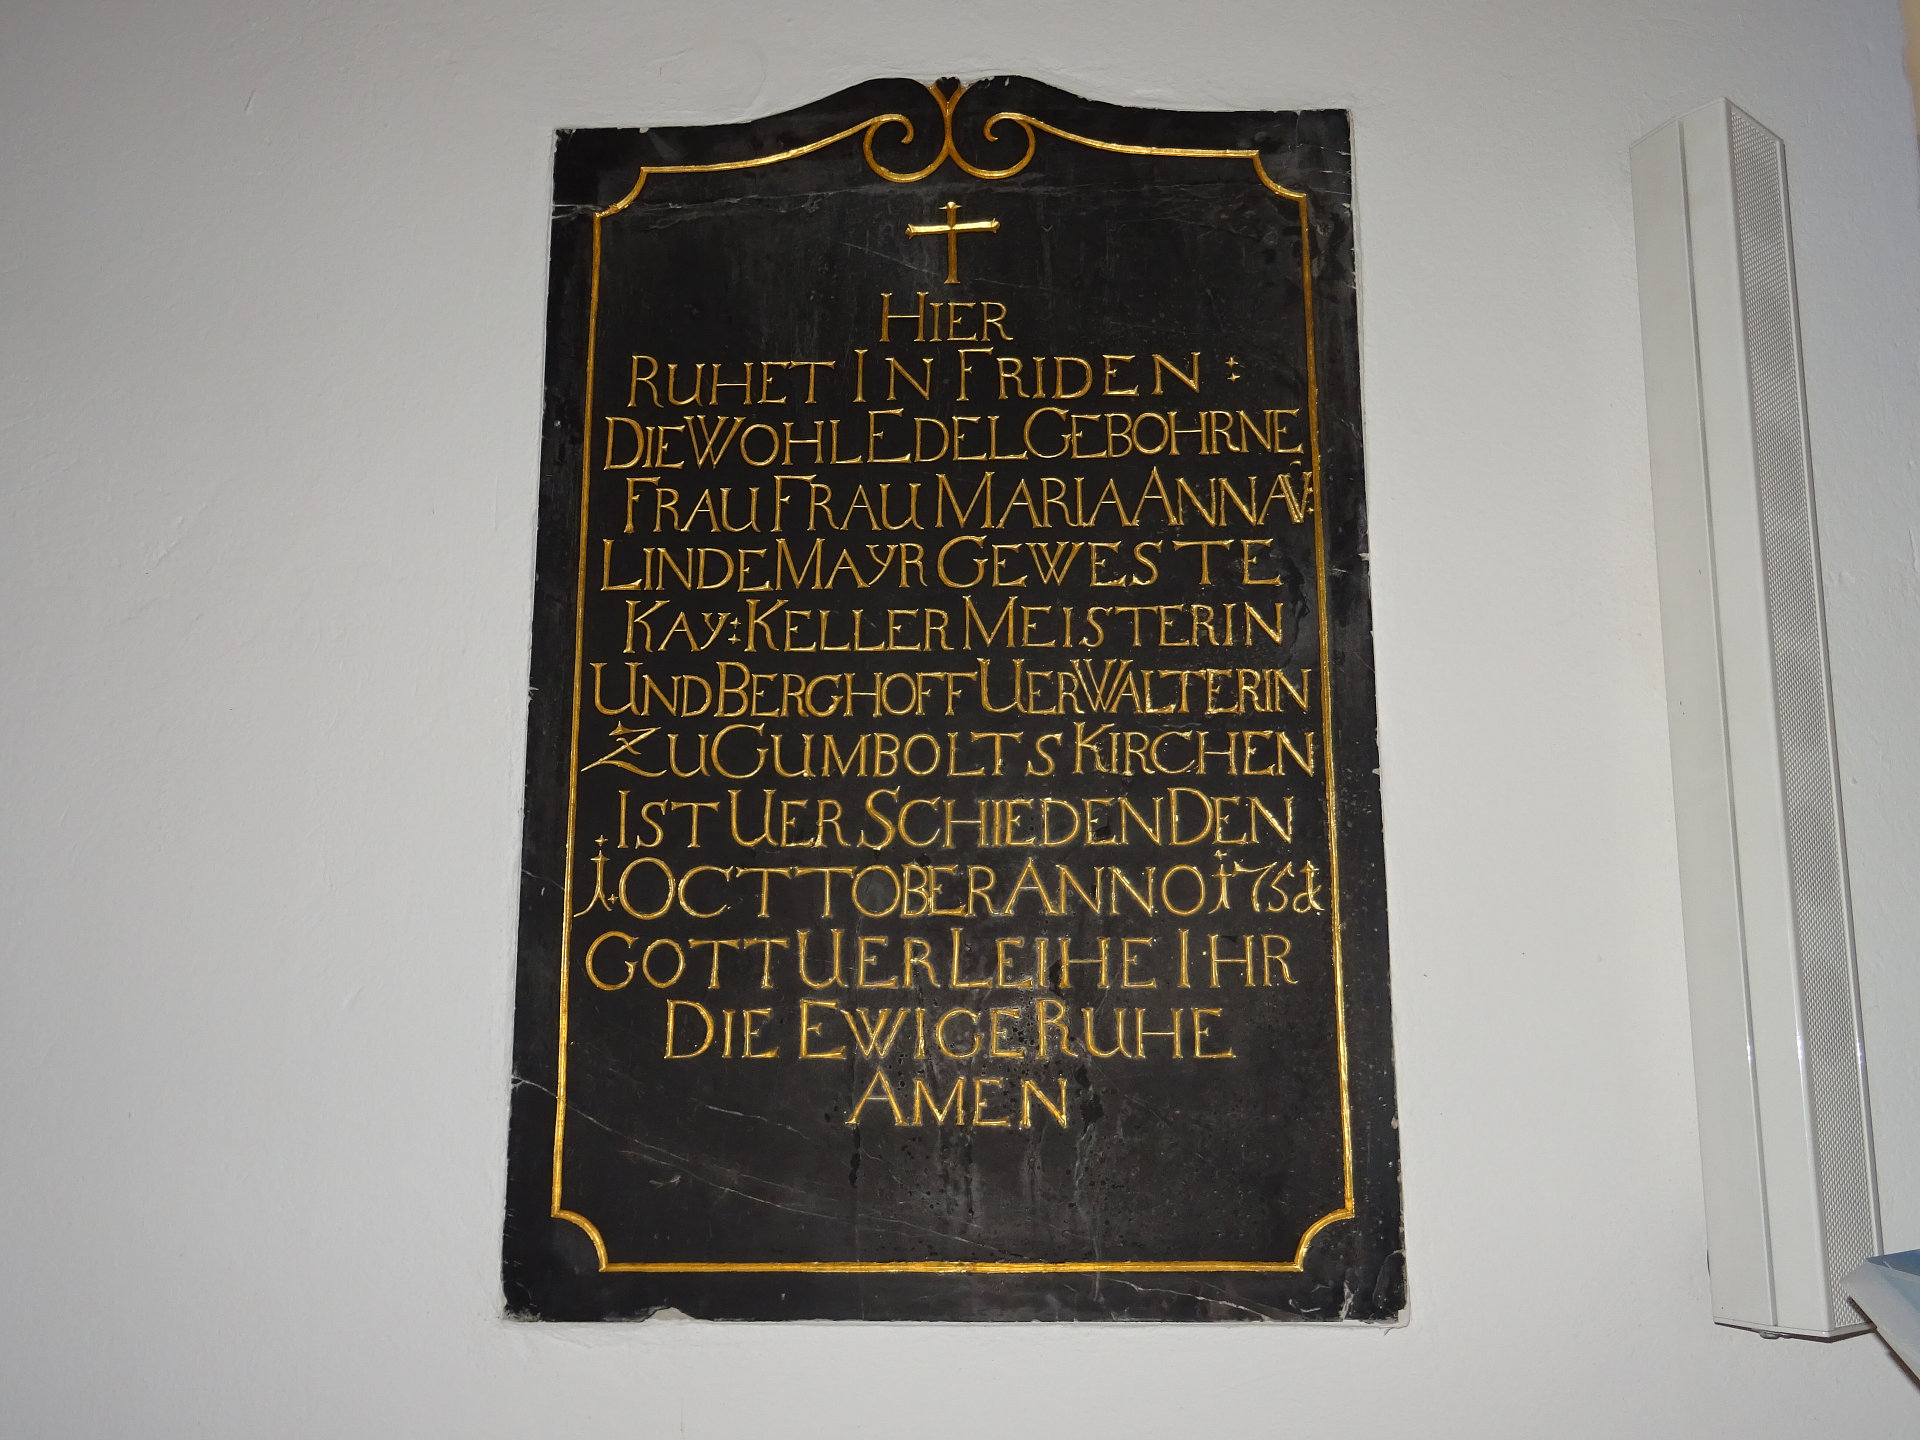 HIER
RUHET IN FRIDEN :
DIE WOHL EDEL GEBOHRNE
FRAU FRAU MARIA ANNA V:
LINDEMAYR GEWESTE
KAY: KELLER MEISTERIN
UND BERGHOFF UERWALTERIN
ZU GUMBOLTS KIRCHEN
IST UER SCHIEDEN DEN
1. OCTTOBER ANNO
GOTT UERLEIHE IHR
DIE EWIGE RUHE
AMEN